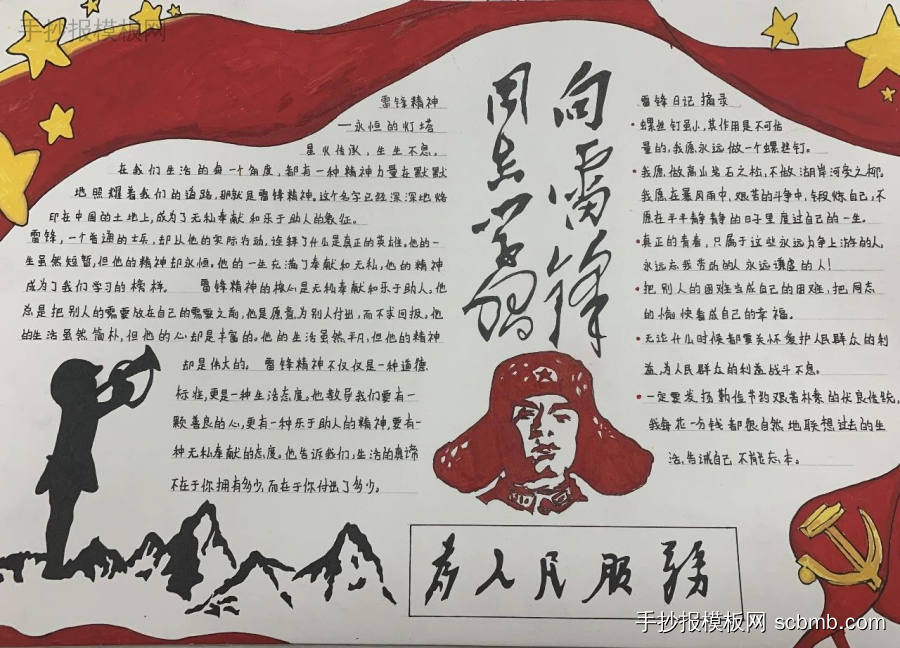 手抄报模板网
雷锋精神
—永恒的灯塔
星火传承，生生不息。
在我们生活的每一个角度，都有一种精神力量在默默
地照耀着我们的道路，那就是雷锋精神。这个名字已经深深地烙
印在中国的土地上，成为了无私奉献和乐于助人的象征。
雷锋，一个普通的士兵，却从他的实际行动，诠释了什么是真正的英雄。他的一
生虽然短暂，但他的精神却永恒。他的一生充满了奉献和无私，他的精神
成为了我们学习的榜样。 雷锋精神的核心是无私奉献和乐于助人。他
总是把别人的需要放在自己的需要之前，他是愿意为别人付出，而不求回报。他
的生活虽然简朴，但他的心却是丰富的。他的生活虽然平凡，但他的精神
却是伟大的。 雷锋精神不仅仅是一种道德
标准，更是一种生活态度。他教导我们要有一
颗善良的心，要有一种乐于助人的精神，要有一
种无私奉献的态度。他告诉我们，生活的真谛
不在于你拥有多少，而在于你付出了多少。
向雷锋
同志学习
雷锋日记摘录
• 螺丝钉虽小，其作用是不可估
量的，我愿永远做一个螺丝钉。
• 我愿做高山岩石之松，不做湖岸河旁之柳。
我愿在暴风雨中，艰苦的斗争中，锻炼自己，不
愿在平平静静的日子里度过自己的一生。
• 真正的青春，只属于这些永远力争上游的人，
永远忘我劳动的人，永远谦虚的人！
• 把别人的困难当成自己的困难，把同志
的愉快看成自己的幸福。
• 无论什么时候都要关怀爱护人民群众的利
益，为人民群众的利益战斗不息。
• 一定要发扬勤俭节约艰苦朴素的优良传统，
我每花一分钱都很自然地联想过去的生
活，告诫自己不能忘本。
为人民服务
手抄报模板网 scbmb.com